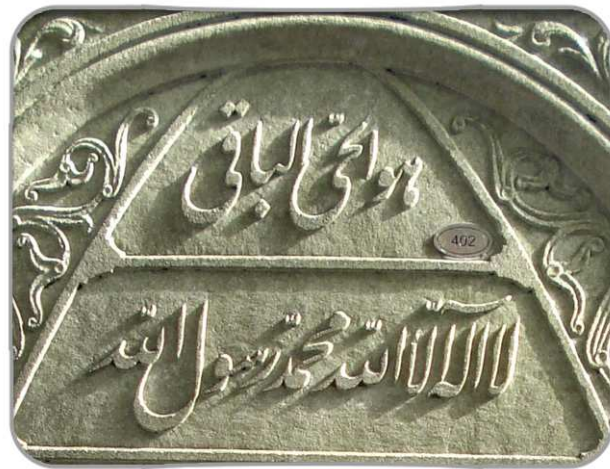 هو الحی الباقی
402
لا اله الا الله محمد رسول الله